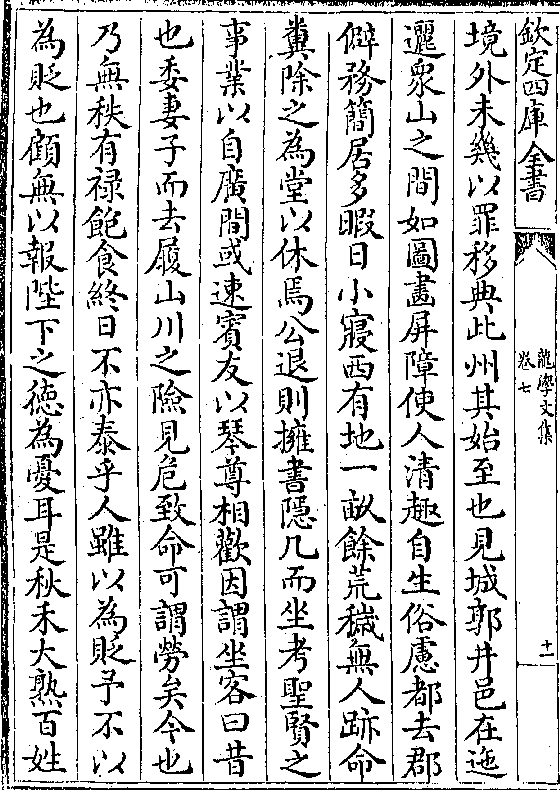 欽定四庫全書
龍學文集
卷七
十一
境外未幾以罪移典此州其始至也見城郭井邑在迤
邐衆山之間如圖畫屏障使人清趣自生俗慮都去郡
僻務簡居多暇日小寢西有地一畝餘荒穢無人跡命
糞除之為堂以休焉公退則擁書隠几而坐考聖賢之
事業以自廣間或速賓友以琴尊相歡因謂坐客曰昔
也委妻子而去履山川之險見危致命可謂勞矣今也
乃無秩有禄飽食終日不亦泰乎人雖以為貶予不以
為貶也顧無以報陛下之徳為憂耳是秋禾大熟百姓